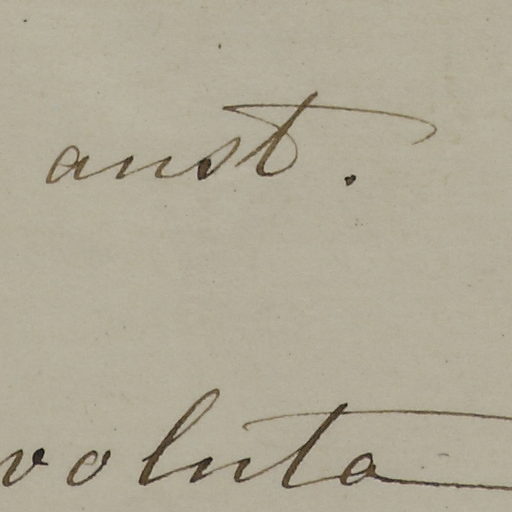 aust.
voluta